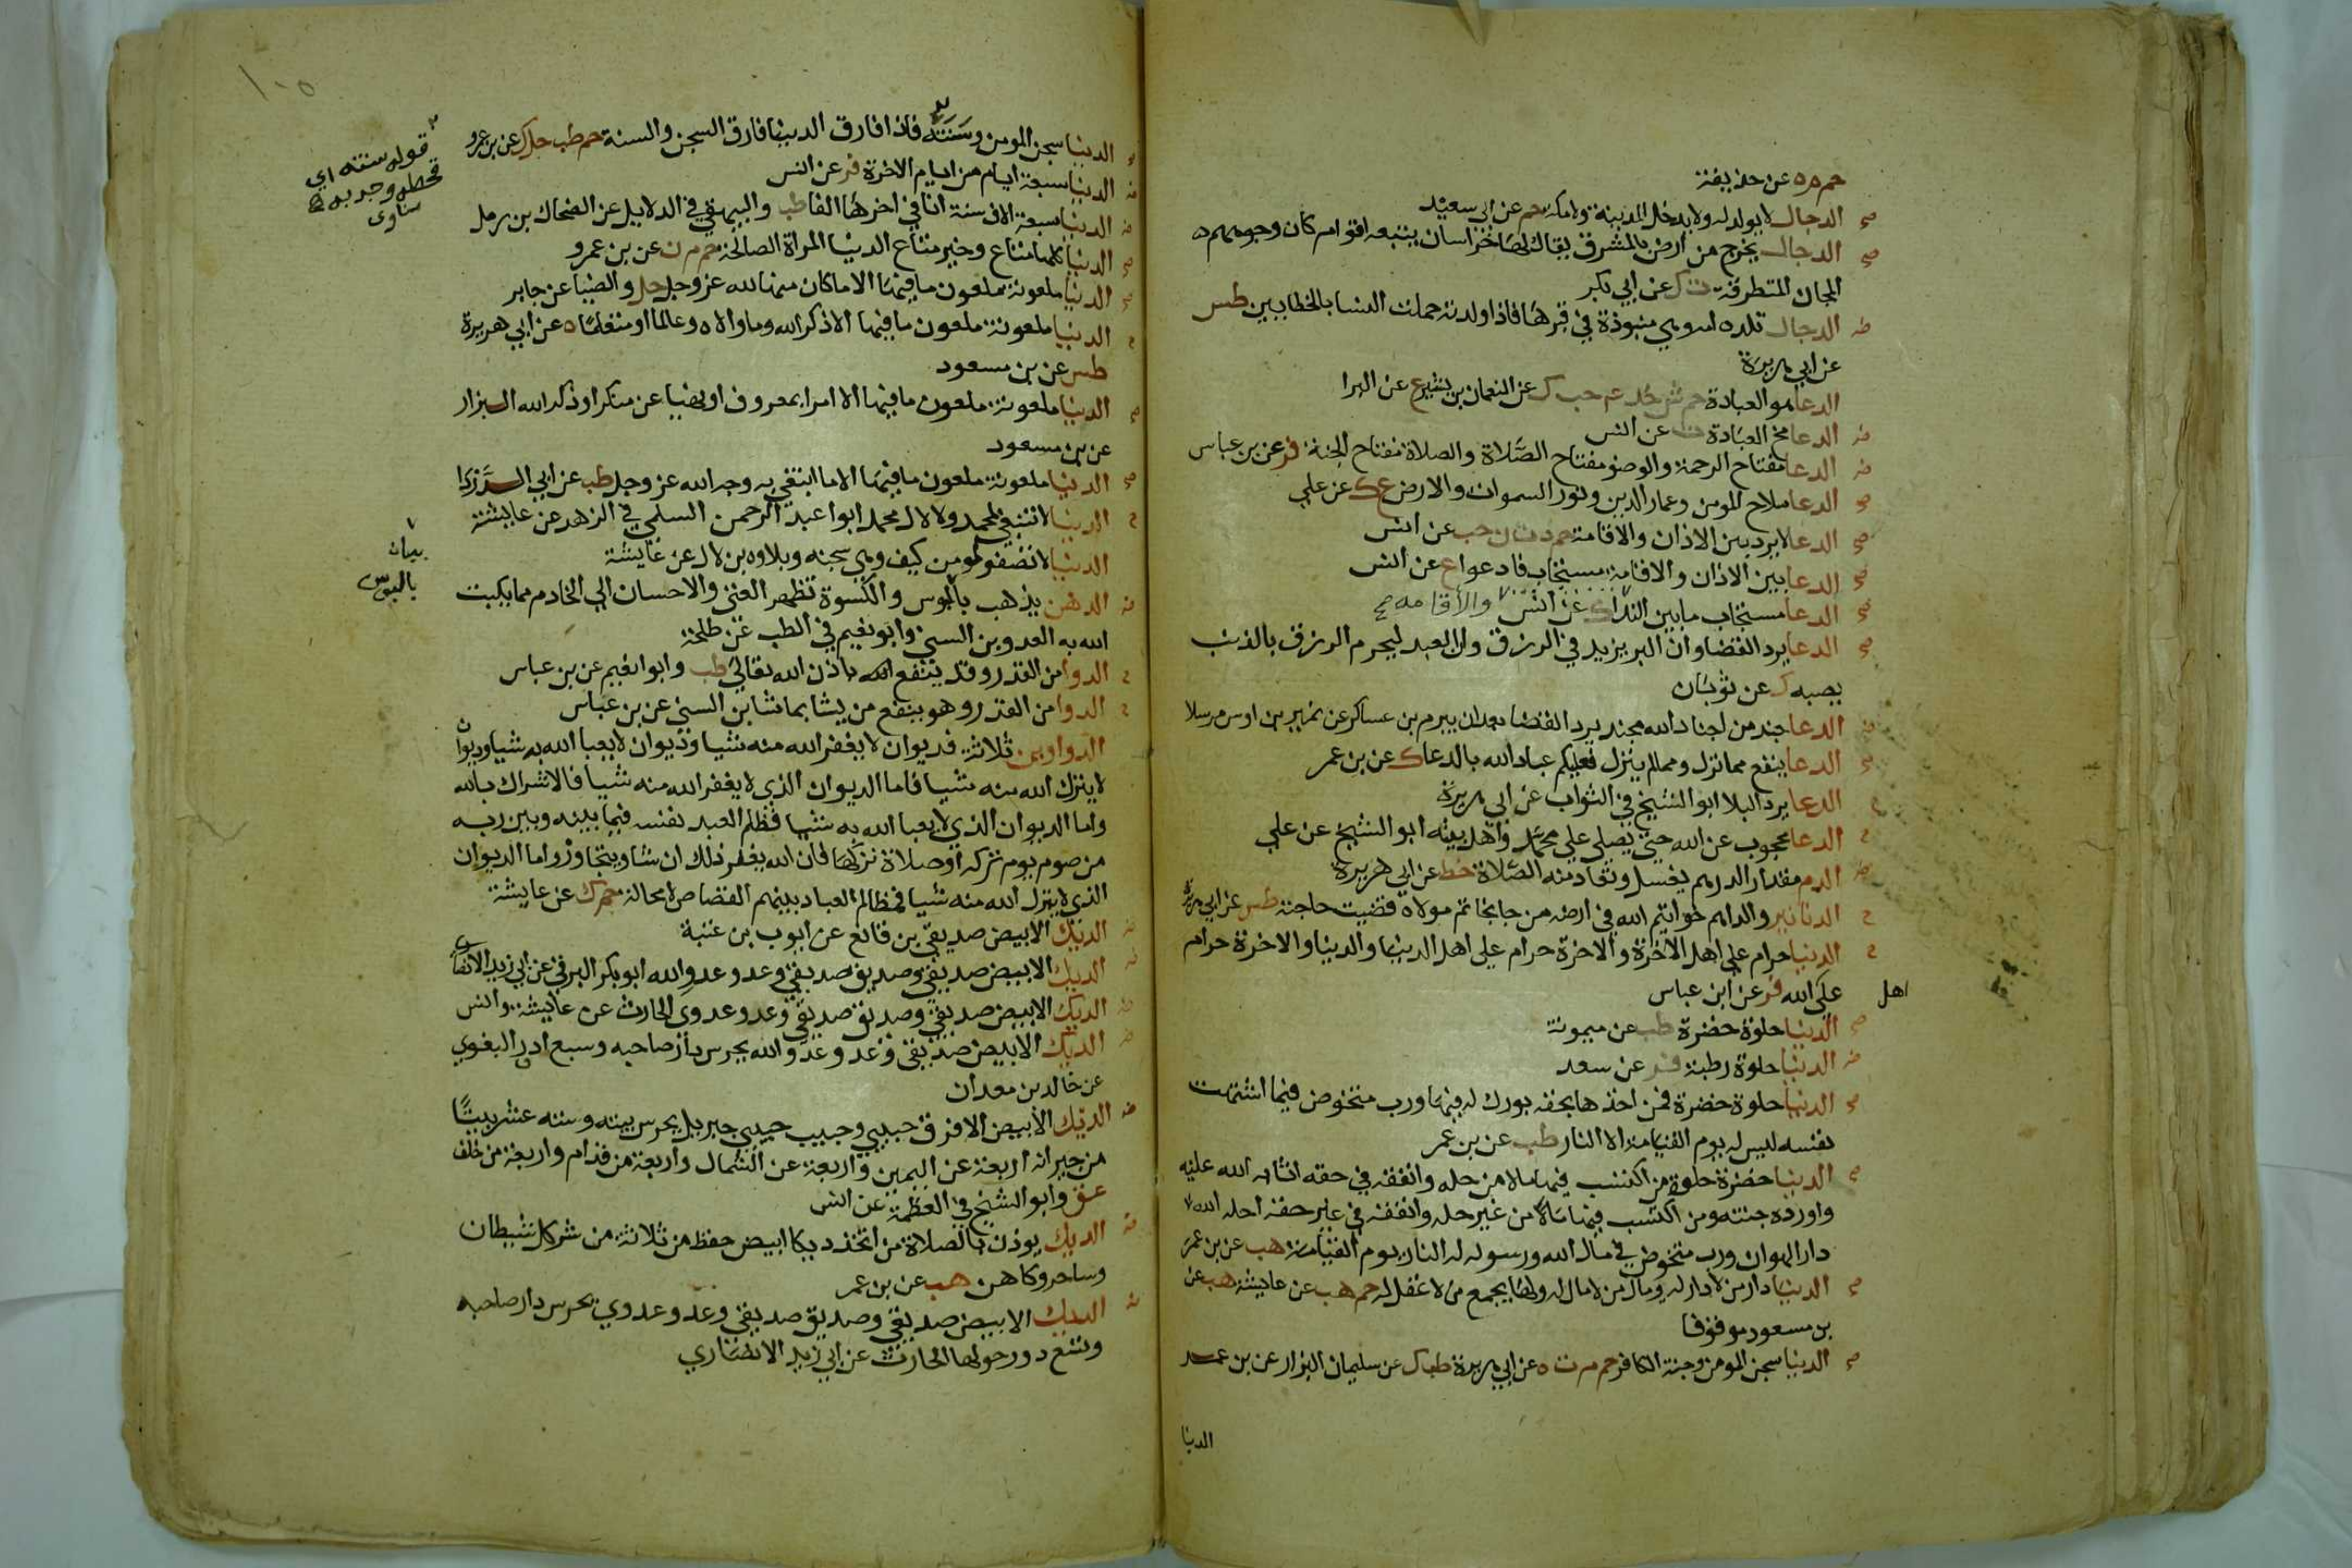 حم م ه عن حذيفة
صح الدجال لا يولد له ولا يدخل المدينة ولا مكة حم عن ابي سعيد
صح الدجال يخرج من ارض بالمشرق يقال لها خراسان يتبعه اقوام كان وجوههم
المجان المتطرقة ت ك عن ابي بكر
ض الدجال تلده امه وهي منبوذة في قبرها فاذا ولدته حملت النسا بالخطايين طس
عن ابي هريرة
الدعا هو العبادة حم ش خد عم حب ك عن النعمان بن بشير ع عن البرا
ض الدعا مخ العبادة ت عن انس
ض الدعا مفتاح الرحمة والوضو مفتاح الصلاة والصلاة مفتاح الجنة فر عن بن عباس
صح الدعا سلاح المومن وعماد الدين ونور السموات والارض ع ك عن علي
صح الدعا لا يرد بين الاذان والاقامة حم د ت ن حب عن انس
صح الدعا بين الاذان والاقامة مستجاب فادعوا ع عن انس
صح الدعا مستجاب ما بين الندا ك عن انس والاقامه صح
صح الدعا يرد القضا وان البر يزيد في الرزق وان العبد ليحرم الرزق بالذنب
يصيبه ك عن ثوبان
ض الدعا جند من اجناد الله مجند يرد القضا بعد ان يبرم بن عساكر عن نمير بن اوس مرسلا
صح الدعا ينفع مما نزل ومما لم ينزل فعليكم عباد الله بالدعا ك عن بن عمر
ح الدعا يرد البلا ابو الشيخ في الثواب عن ابي هريرة
ح الدعا محجوب عن الله حتى يصلي على محمد واهل بيته ابو الشيخ عن علي
ض الدم مقدار الدرهم يغسل وتعاد منه الصلاة خط عن ابي هريرة
ح الدنانير والدراهم خواتيم الله في ارضه من جا بخاتم مولاه قضيت حاجته طس عن ابي هريرة
ح الدنيا حرام على اهل الاخرة والاخرة حرام على اهل الدنيا والدنيا والاخرة حرام
اهل
على الله فر عن ابن عباس
صح الدنيا حلوة خضرة طب عن ميمونة
ض الدنيا حلوة رطبة فر عن سعد
صح الدنيا حلوة خضرة فمن اخذها بحقه بورك له فيها ورب متخوض فيما اشتهت
نفسه ليس له يوم القيامة الا النار طب عن بن عمر
صح الدنيا خضرة حلوة من اكتسب فيها مالا من حله وانفقه في حقه اثابه الله عليه
واورده جنته ومن اكتسب فيها مالا من غير حله وانفقه في غير حقه احله الله
دار الهوان ورب متخوض في مال الله ورسوله له النار يوم القيامة هب عن بن عمر
صح الدنيا دار من لا دار له ومال من لا مال له ولها يجمع من لا عقل له حم هب عن عايشة هب عن
بن مسعود موقوفا
صح الدنيا سجن المومن وجنة الكافر حم م ت ه عن ابي هريرة طب ك عن سليمان البزار عن بن عمر
الدنيا
١٠٥
صح الدنيا سجن المومن وسنته فاذا فارق الدنيا فارق السجن والسنة حم طب حل ك عن بن عمرو
قوله سنته اي
قحطه وجدبه
مناوى
ض الدنيا سبعة ايام من ايام الاخرة فر عن انس
ض الدنيا سبعة الاف سنة انا في اخرها الفا طب والبيهقي في الدلايل عن الضحاك بن زمل
صح الدنيا كلها متاع وخير متاع الدنيا المراة الصالحة حم م ن عن بن عمرو
صح الدنيا ملعونة ملعون ما فيها الا ما كان منها لله عز وجل حل والضيا عن جابر
ح الدنيا ملعونة ملعون ما فيها الا ذكر الله وما والاه وعالما او متعلما ه عن ابي هريرة
طس عن بن مسعود
صح الدنيا ملعونة ملعون ما فيها الا امرا بمعروف او نهيا عن منكر او ذكر الله البزار
عن بن مسعود
صح الدنيا ملعونة ملعون ما فيها الا ما ابتغي به وجه الله عز وجل طب عن ابي الدردا
ح الدنيا لا تنبغي لمحمد ولا لال محمد ابوا عبد الرحمن السلمي في الزهد عن عايشة
الدنيا لا تصفو لمومن كيف وهي سجنه وبلاوه بن لال عن عايشة
بيان
بالبوس
ض الدهن يذهب بالبوس والكسوة تظهر الغنى والاحسان الى الخادم مما يكبت
الله به العدو بن السني وابو نعيم في الطب عن طلحة
ح الدوا من القدر وقد ينفع باذن الله تعالى طب وابوا نعيم عن بن عباس
ح الدوا من القدر وهو ينفع من يشا بما شا بن السني عن بن عباس
الدواوين ثلاثة فديوان لا يغفر الله منه شيا وديوان لا يعبا الله به شيا وديوان
لا يترك الله منه شيا فاما الديوان الذي لا يغفر الله منه شيا فالاشراك بالله
واما الديوان الذي لا يعبا الله به شيا فظلم العبد نفسه فيما بينه وبين ربه
من صوم يوم تركه او صلاة تركها فان الله يغفر ذلك ان شا ويتجاوز واما الديوان
الذي لا يترك الله منه شيا فمظالم العباد بينهم القصاص لا محالة حم ك عن عايشة
ض الديك الابيض صديقي بن قانع عن ايوب بن عتبة
ض الديك الابيض صديقي وصديق صديقي وعدو عدو الله ابو بكر البرقي عن ابي زيد الانصاري
ض الديك الابيض صديقي وصديق صديقي وعدو عدوي الحارث عن عايشة وانس
ض الديك الابيض صديقي وعدو عدو الله يحرس دار صاحبه وسبع ادر البغوي
عن خالد بن معدان
ض الديك الابيض الافرق حبيبي وحبيب حبيبي جبريل يحرس بيته وستة عشر بيتا
من جيرانه اربعة عن اليمين واربعة عن الشمال واربعة من قدام واربعة من خلف
عق وابو الشيخ في العظمة عن انس
ض الديك يوذن بالصلاة من اتخذ ديكا ابيض حفظ من ثلاثة من شر كل شيطان
وساحر وكاهن هب عن بن عمر
ض الديك الابيض صديقي وصديق صديقي وعدو عدوي يحرس دار صاحبه
وتسع دور حولها الحارث عن ابي زيد الانصاري